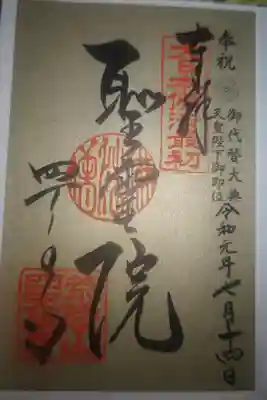 奉祝
御代替大典
天皇陛下御即位
令和元年七月十四日
奉拝
聖霊院
四天王寺